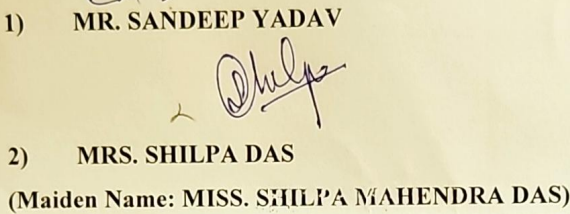 1) MR. SANDEEP YADAV
Shilpa
2) MRS. SHILPA DAS
(Maiden Name: MISS. SHILPA MAHENDRA DAS)